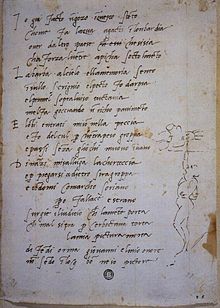 I o gia facto un gozo in questo stento
chome fa lacqua a gacti in lombardia
o ver daltro paese che si sia
cha forza luentre apicha socto lmento
La barba alcielo ella memoria sento
in sullo scrignio el pecto fo darpia
el pennel sopraluiso tuctauia
mel fa gocciando un richo pauimento
E lobi entrati mison nella peccia
e fo delcul p chontrapeso groppa
e passi seza gliochi muouo inuano
Dinazi misalluga lachorteccia
e p piegarsi adietro siragroppa
e tendomi comarcho soriano
po fallace e strano
surgie iluditio che lamete porta
che mal si p cerboctana torta
lamia pictura morta
difedi orma giouanni elmio onore
no sedo bo ne io pictore